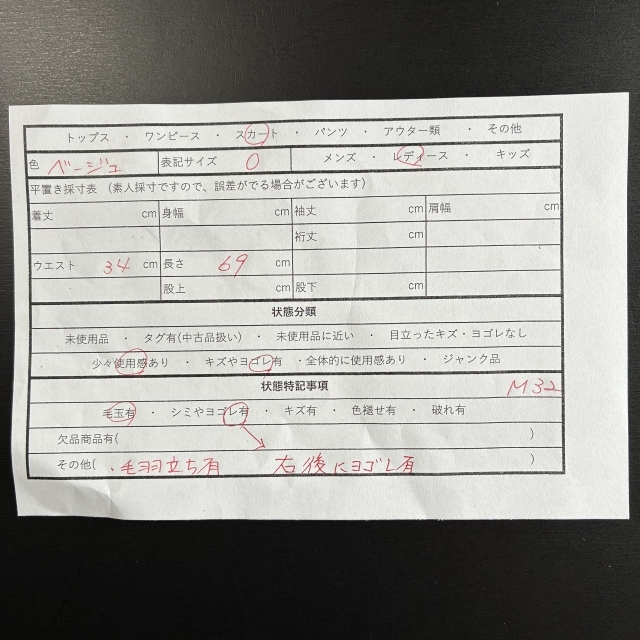 トップス ・ ワンピース ・ スカート ・ パンツ ・ アウター類 ・ その他
色 ベージュ 表記サイズ 0 メンズ ・ レディース ・ キッズ
平置き採寸表 (素人採寸ですので、誤差がでる場合がございます)
着丈 cm 身幅 cm 袖丈 cm 肩幅 cm
裄丈 cm
ウエスト 34 cm 長さ 69 cm cm
股上 cm 股下 cm
状態分類
未使用品 ・ タグ有(中古品扱い) ・ 未使用品に近い ・ 目立ったキズ・ヨゴレなし
少々使用感あり ・ キズやヨゴレ有 ・全体的に使用感あり ・ ジャンク品
状態特記事項 M32
毛玉有 ・ シミやヨゴレ有 ・ キズ有 ・ 色褪せ有 ・ 破れ有
欠品商品有( )
その他( ・毛羽立ち有 右後にヨゴレ有 )